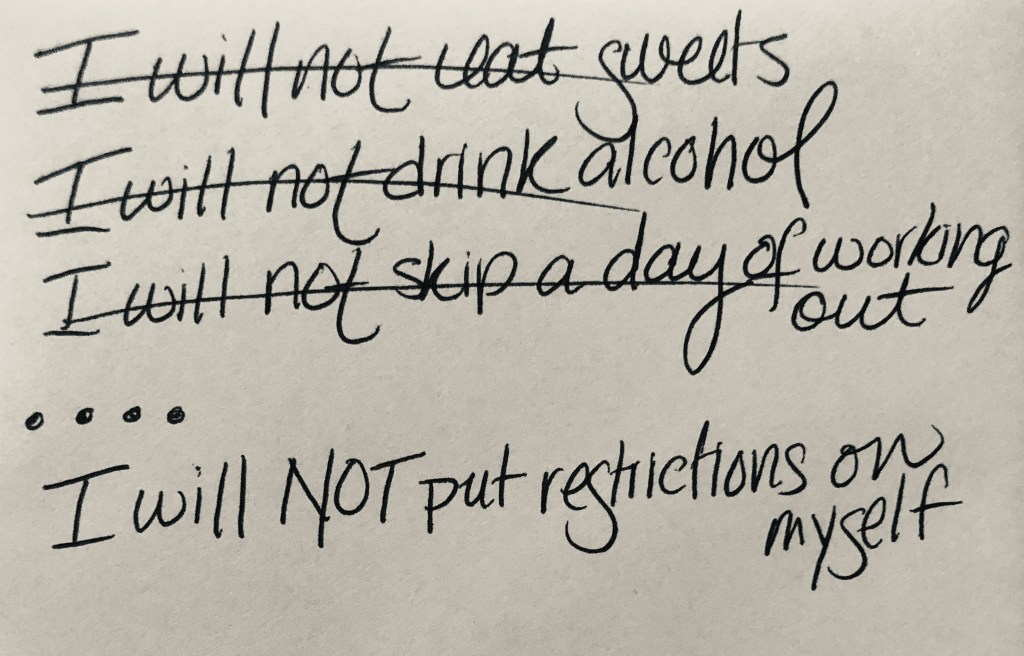 I will not eat sweets
I will not drink alcohol
I will not skip a day of working
out
....
I will NOT put restrictions on
myself